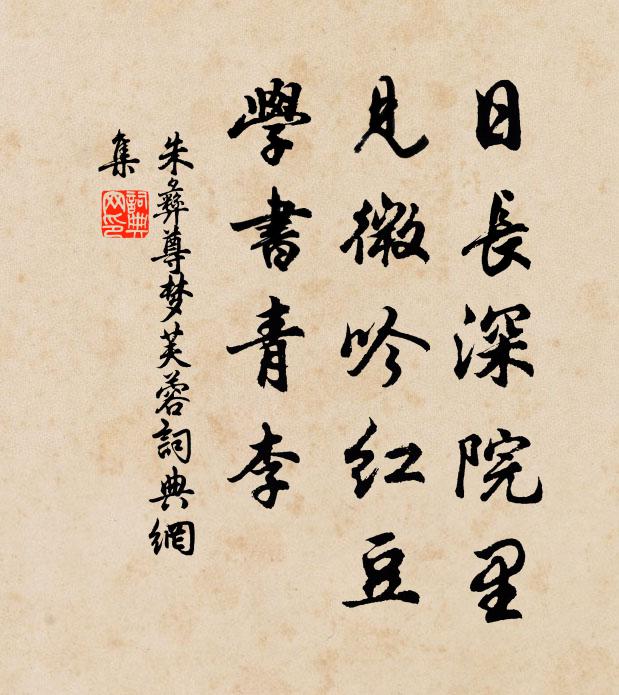 日長深院里
見微吟红豆
學書青李
朱彝尊梦芙蓉詞典網
集
詞典
网印